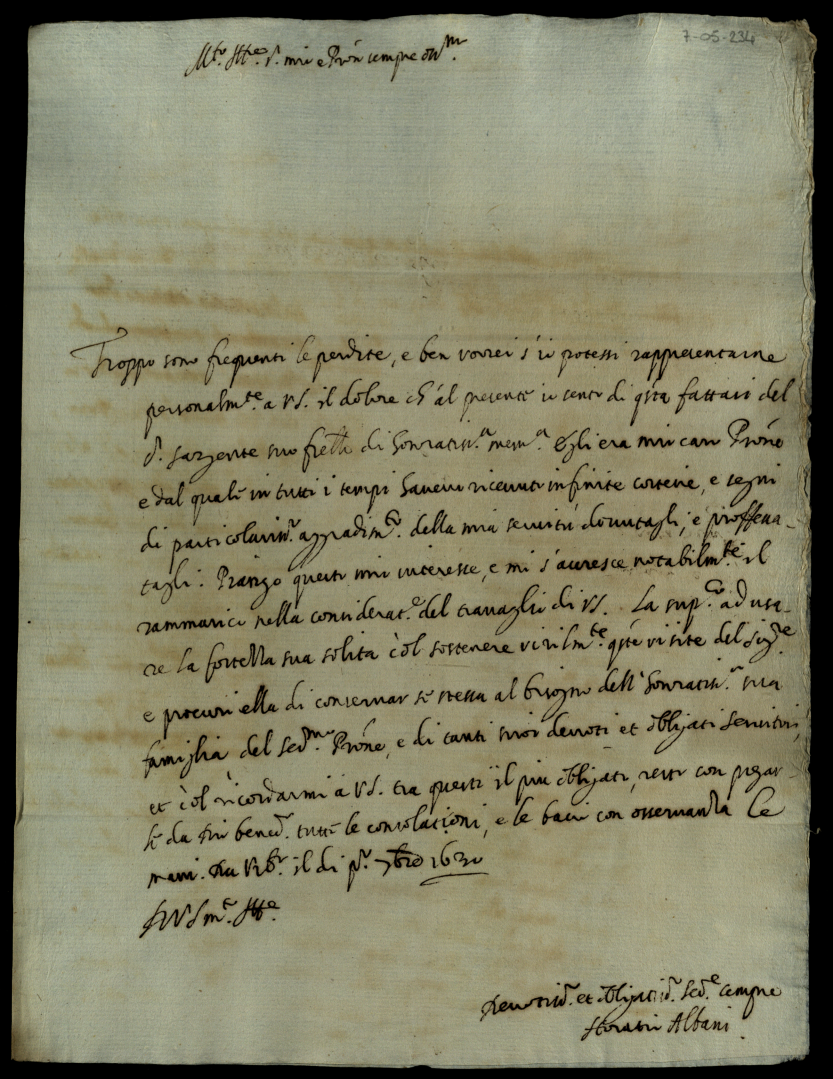 7-05-234
M.to Ill.re S.r mio e Prōn sempre oss.mo
Troppo sono frequenti le perdite, e ben vorrei s'io potessi rappresentarne
personalm.te a VS. il dolore ch'al presente io sento di q̄sta fattasi del
S. Sargente suo frello di honoratiss.a mem.a Egli era mio caro Prōne
e dal quale in tutti i tempi havevo ricevuti infinite cortesie, e segni
di particolariss.o aggradim.to della mia servitù dovutagli, e proffessa-
tagli. Piango questo mio interesse, e mi s'accresce notabilm.te il
rammarico nella considerat.e del travaglio di VS. La supp.co ad usa-
re la fortezza sua solita col sostenere virilm.te q̄ste visite del Sig.re
e procuri ella di conservar se stessa al bisogno dell'honoratiss.a sua
famiglia del Ser.mo Prōne, e di tanti suoi devoti et obligati servitori,
et col ricordarmi a VS. tra questi il più obligato, resto con pregar-
le da Dio bened.o tutte le consolationi, e le bacio con osservanza le
mani. Da Urb.o il di p.o 7bre 1630
Di VS m.to Ill.re
Devotiss.o et obligatiss.o Ser.e sempre
Horatio Albani